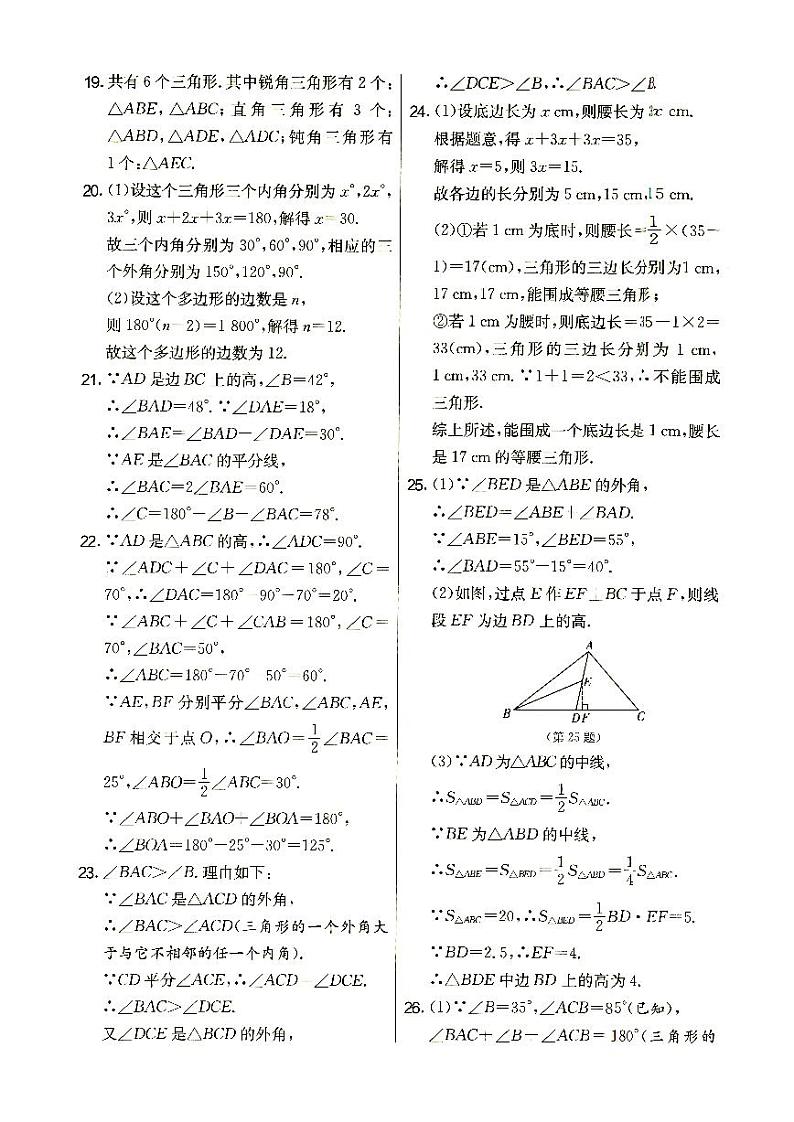 19. 共有 6 个三角形. 其中锐角三角形有 2 个:
△ABE, △ABC; 直角三角形有 3 个:
△ABD, △ADE, △ADC; 钝角三角形有
1 个: △AEC.
20. (1)设这个三角形三个内角分别为 x°,2x°,
3x°,则 x+2x+3x=180,解得 x=30.
故三个内角分别为 30°,60°,90°,相应的三
个外角分别为 150°,120°,90°.
(2)设这个多边形的边数是 n,
则 180°(n-2)=1 800°,解得 n=12.
故这个多边形的边数为 12.
21. ∵AD 是边 BC 上的高,∠B=42°,
∴∠BAD=48°. ∵∠DAE=18°,
∴∠BAE=∠BAD-∠DAE=30°.
∵AE 是∠BAC 的平分线,
∴∠BAC=2∠BAE=60°.
∴∠C=180°-∠B-∠BAC=78°.
22. ∵AD 是△ABC 的高,∴∠ADC=90°.
∵∠ADC+∠C+∠DAC=180°,∠C=
70°,∴∠DAC=180°-90°-70°=20°.
∵∠ABC+∠C+∠CAB=180°,∠C=
70°,∠BAC=50°,
∴∠ABC=180°-70°-50°=60°.
∵AE,BF 分别平分∠BAC,∠ABC,AE,
BF 相交于点 O,∴∠BAO=1/2∠BAC=
25°,∠ABO=1/2∠ABC=30°.
∵∠ABO+∠BAO+∠BOA=180°,
∴∠BOA=180°-25°-30°=125°.
23. ∠BAC>∠B. 理由如下:
∵∠BAC 是△ACD 的外角,
∴∠BAC>∠ACD(三角形的一个外角大
于与它不相邻的任一个内角).
∵CD 平分∠ACE,∴∠ACD=∠DCE.
∴∠BAC>∠DCE.
又∠DCE 是△BCD 的外角,
∴∠DCE>∠B,∴∠BAC>∠B.
24. (1)设底边长为 x cm,则腰长为 3x cm.
根据题意,得 x+3x+3x=35,
解得 x=5,则 3x=15.
故各边的长分别为 5 cm,15 cm,15 cm.
(2)①若 1 cm 为底时,则腰长=1/2×(35-
1)=17(cm),三角形的三边长分别为1 cm,
17 cm,17 cm,能围成等腰三角形;
②若 1 cm 为腰时,则底边长=35-1×2=
33(cm),三角形的三边长分别为 1 cm,
1 cm,33 cm. ∵1+1=2<33,∴不能围成
三角形.
综上所述,能围成一个底边长是 1 cm,腰长
是 17 cm 的等腰三角形.
25. (1)∵∠BED 是△ABE 的外角,
∴∠BED=∠ABE+∠BAD.
∵∠ABE=15°,∠BED=55°,
∴∠BAD=55°-15°=40°.
(2)如图,过点 E 作 EF⊥BC 于点 F,则线
段 EF 为边 BD 上的高.
A
E
B DF C
(第 25 题)
(3)∵AD 为△ABC 的中线,
∴S△ABD=S△ACD=1/2S△ABC.
∵BE 为△ABD 的中线,
∴S△ABE=S△BED=1/2S△ABD=1/4S△ABC.
∵S△ABC=20,∴S△BED=1/2BD·EF=5.
∵BD=2.5,∴EF=4.
∴△BDE 中边 BD 上的高为 4.
26. (1)∵∠B=35°,∠ACB=85°(已知),
∠BAC+∠B+∠ACB=180°(三角形的